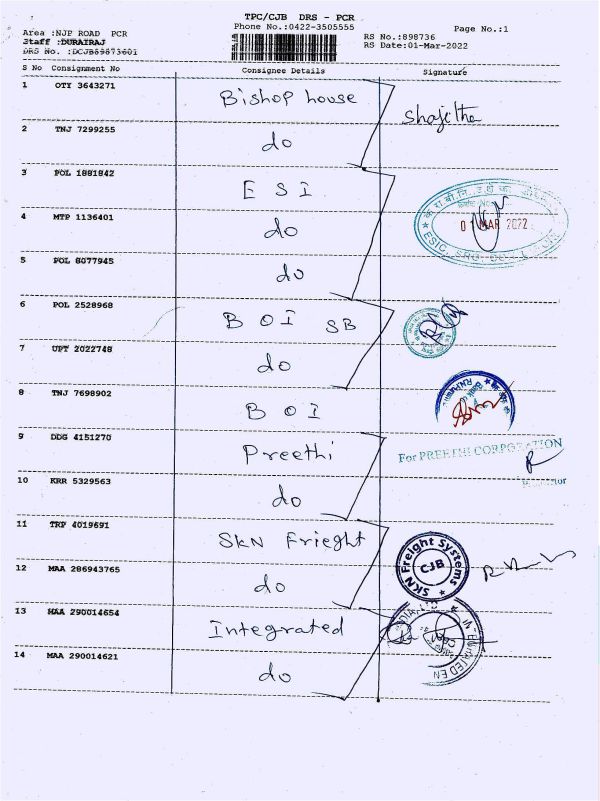 TPC/CJB DRS - PCR
Area :NJP ROAD PCR
Phone No.:0422-3505555
Page No.:1
Staff :DURAIRAJ
RS No.:898736
DRS No. :DCJB89873601
RS Date:01-Mar-2022
S No Consignment No Consignee Details Signature
1 OTY 3643271 Bishop house
Shajitha
2 TNJ 7299255 do
3 POL 1881842 E S I
4 MTP 1136401 do
01 MAR 2022
5 POL 8077945 do
6 POL 2528968 B O I SB
7 UPT 2022748 do
8 TNJ 7698902 B O I
9 DDG 4151270 Preethi
For PREETHI CORPORATION
10 KRR 5329563 do
11 TRP 4019691 SKN Frieght
SKN Freight Systems
CJB
12 MAA 286943765 do
13 MAA 290014654 Integrated
14 MAA 290014621 do